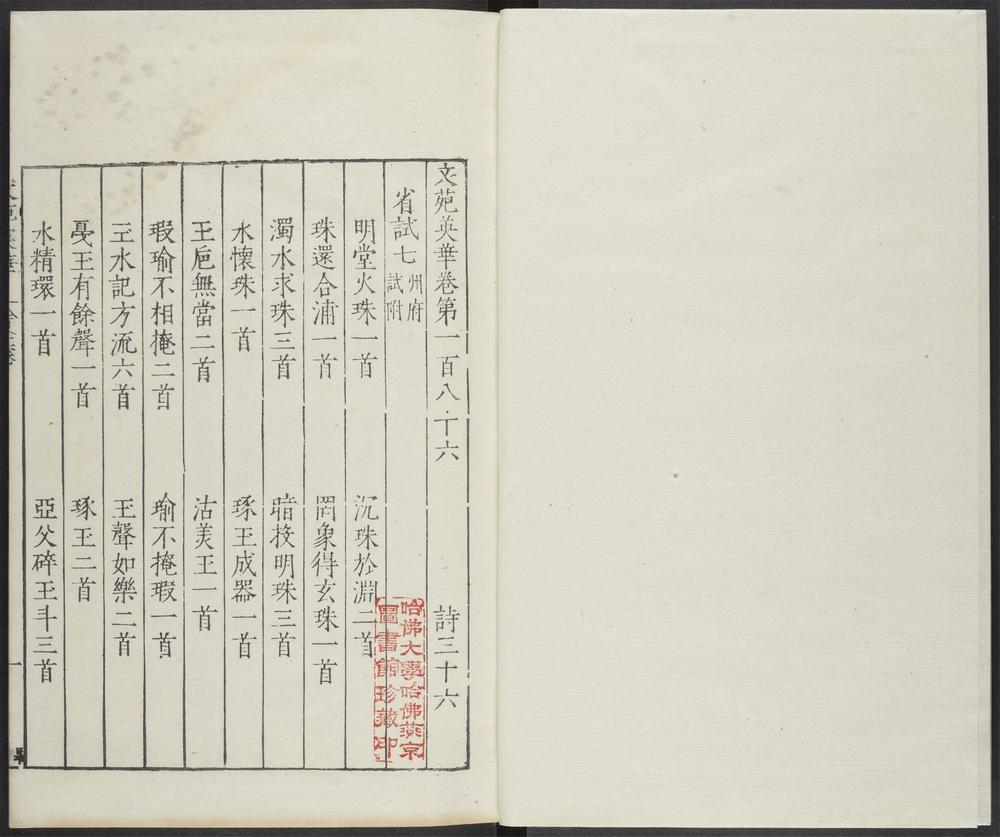 文苑英華卷第一百八十六 詩三十六
省試七 州府試附
明堂火珠一首 沉珠於淵二首
珠還合浦一首 罔象得玄珠一首
濁水求珠三首 暗投明珠三首
水懷珠一首 琢玉成器一首
玉巵無當二首 沽美玉一首
瑕瑜不相掩二首 瑜不掩瑕一首
玉水記方流六首 玉聲如樂二首
戞玉有餘聲一首 琢玉二首
水精環一首 亞父碎玉斗三首
一
哈佛大學哈佛燕京
圖書館珍藏印